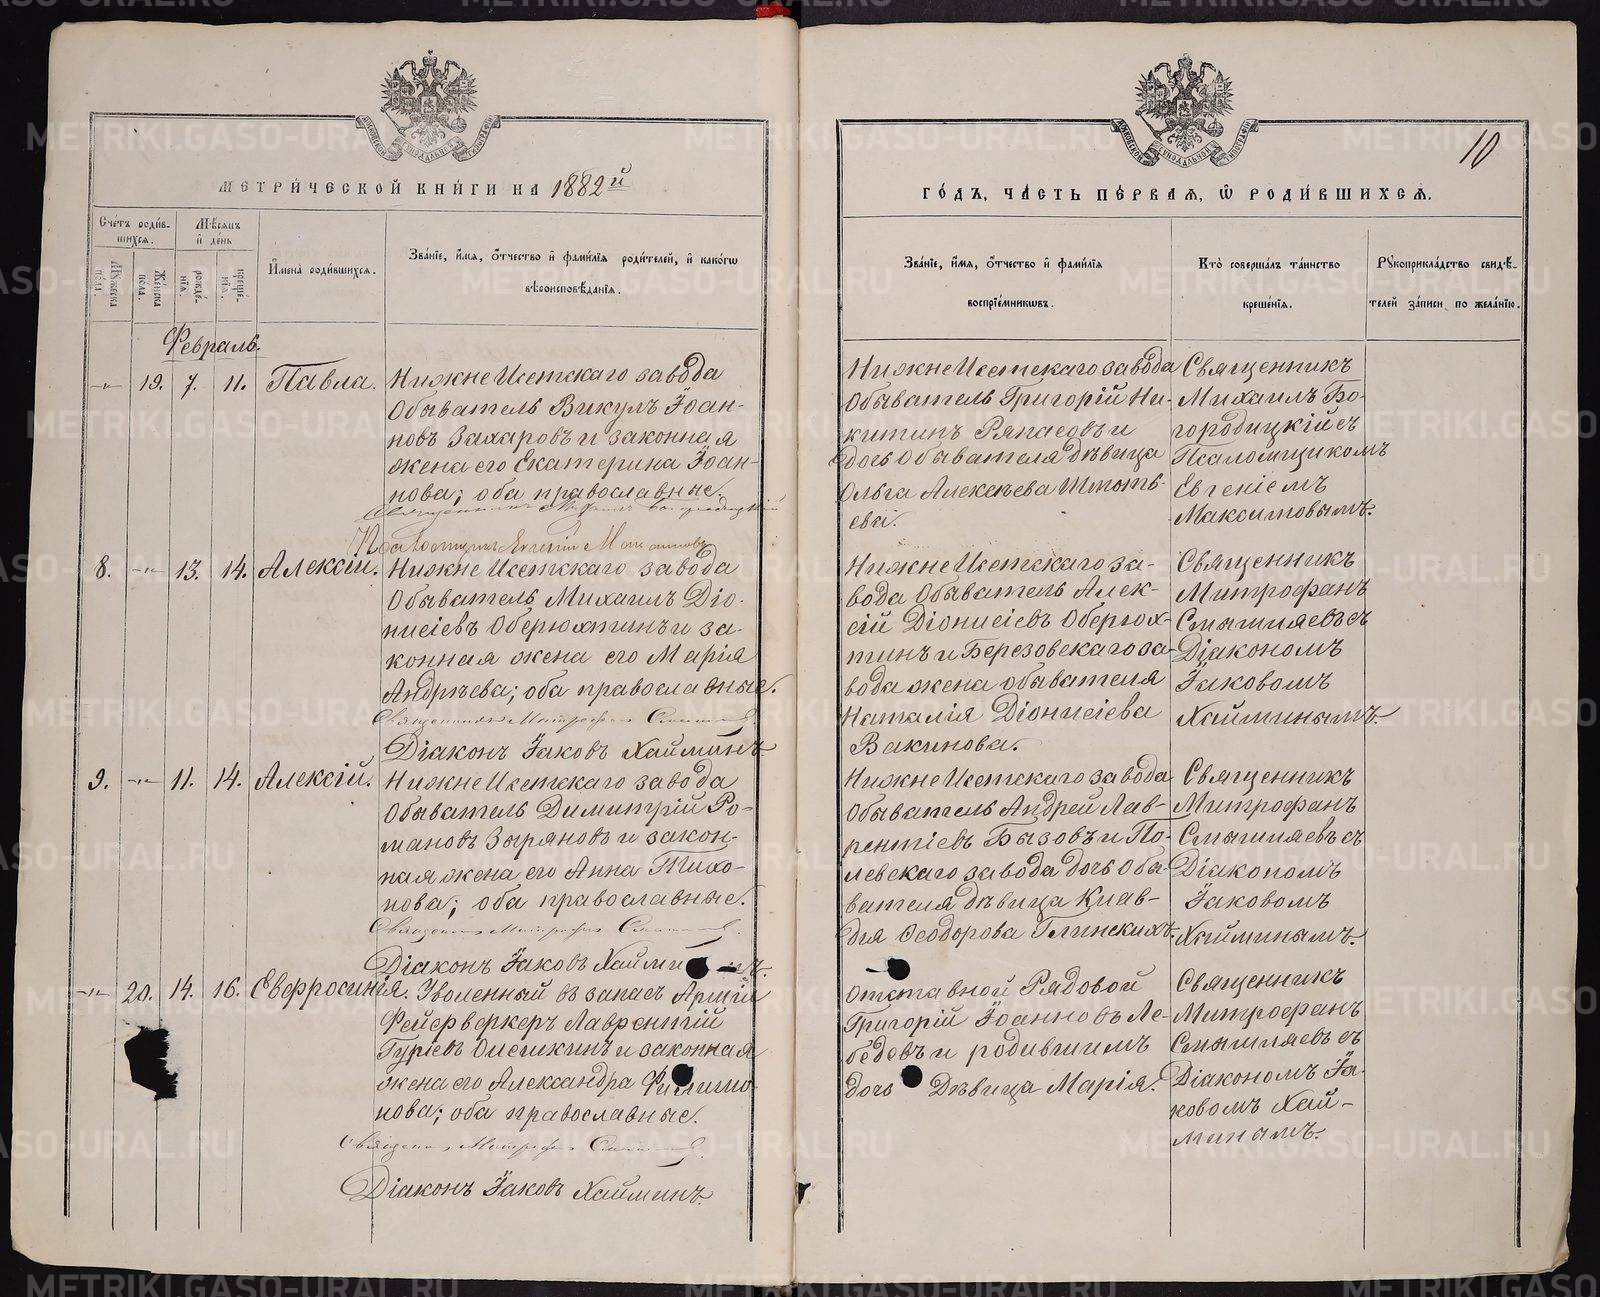 МЕТРИ́ЧЕСКОЙ КНИ́ГИ НА 1882й
Сче́тъ роди́в-
шихсѧ.
Мѣсѧцъ
и҆ де́нь
Мꙋжеска
пола.
Же́нска
пола.
рожде́-
нїѧ.
креще́-
нїѧ.
И҆мена̀ роди́вшихсѧ.
Зва́нїе, и҆́мѧ, ѻ҆́тчество и҆ фами́лїѧ роди́телей, и҆ како́гѡ
вѣроисповѣ́данїѧ.
Февраль.
-"- 19. 7. 11. Павла. НижнеИсетскаго завода
Обыватель Викулъ Іоан-
новъ Захаровъ и законная
жена его Екатерина Іоан-
нова; оба православные.
Священникъ Михаилъ Богородицкій
Псаломщикъ Евгеній Максимовъ
8. -"- 13. 14. Алексій. НижнеИсетскаго завода
Обыватель Михаилъ Діо-
нисіевъ Оберюхтинъ и за-
конная жена его Марія
Андрѣева; оба православные.
Священникъ Митрофанъ Смышляевъ
Діаконъ Іаковъ Хайминъ
9. -"- 11. 14. Алексій. НижнеИсетскаго завода
Обыватель Димитрій Ро-
мановъ Зыряновъ и закон-
ная жена его Анна Тихо-
нова; оба православные.
Священникъ Митрофанъ Смышляевъ
Діаконъ Іаковъ Хайминъ.
-"- 20. 14. 16. Евфросинія. Уволенный въ запасъ Арміи
Фейерверкеръ Лаврентій
Гуріевъ и законная
жена его Александра Филимо-
нова; оба православные.
Священникъ Митрофанъ Смышляевъ
Діаконъ Іаковъ Хайминъ.
10
ГО́ДЪ, ЧА́СТЬ ПЕ́РВАѦ, Ѡ҆ РОДИ́ВШИХСѦ.
Зва́нїе, и҆́мѧ, ѻ҆́тчество и҆ фами́лїѧ
воспрїе́мникѡвъ.
Кто̀ соверша́лъ та́инство
креще́нїѧ.
Рꙋкоприкла́дство свидѣ́-
телей за́писи по жела́нїю.
НижнеИсетскаго завода
Обыватель Григорій Ни-
китинъ Ряпасовъ и
дочь Обывателя дѣвица
Ольга Алексѣева
Священникъ
Михаилъ Бо-
городицкій съ
Псаломщикомъ
Евгеніемъ
Максимовымъ.
НижнеИсетскаго за-
вода Обыватель Алек-
сій Діонисіевъ Оберюх-
тинъ и Березовскаго за-
вода жена обывателя
Наталія Діонисіева
Вакинова.
Священникъ
Митрофанъ
Смышляевъ съ
Діакономъ
Іаковомъ
Хайминымъ.
НижнеИсетскаго завода
Обыватель Андрей Лав-
рентіевъ Бызовъ и По-
левскаго завода дочь Обы-
вателя дѣвица Клав-
дія Ѳеодорова Глинскихъ.
Священникъ
Митрофанъ
Смышляевъ съ
Діакономъ
Іаковомъ
Хайминымъ.
Отставной Рядовой
Григорій Іоанновъ Ле-
бедевъ и родившимъ
дочь Дѣвица Марія.
Священникъ
Митрофанъ
Смышляевъ съ
Діакономъ Іа-
ковомъ Хай-
минымъ.
METRIKI.GASO-URAL.RU